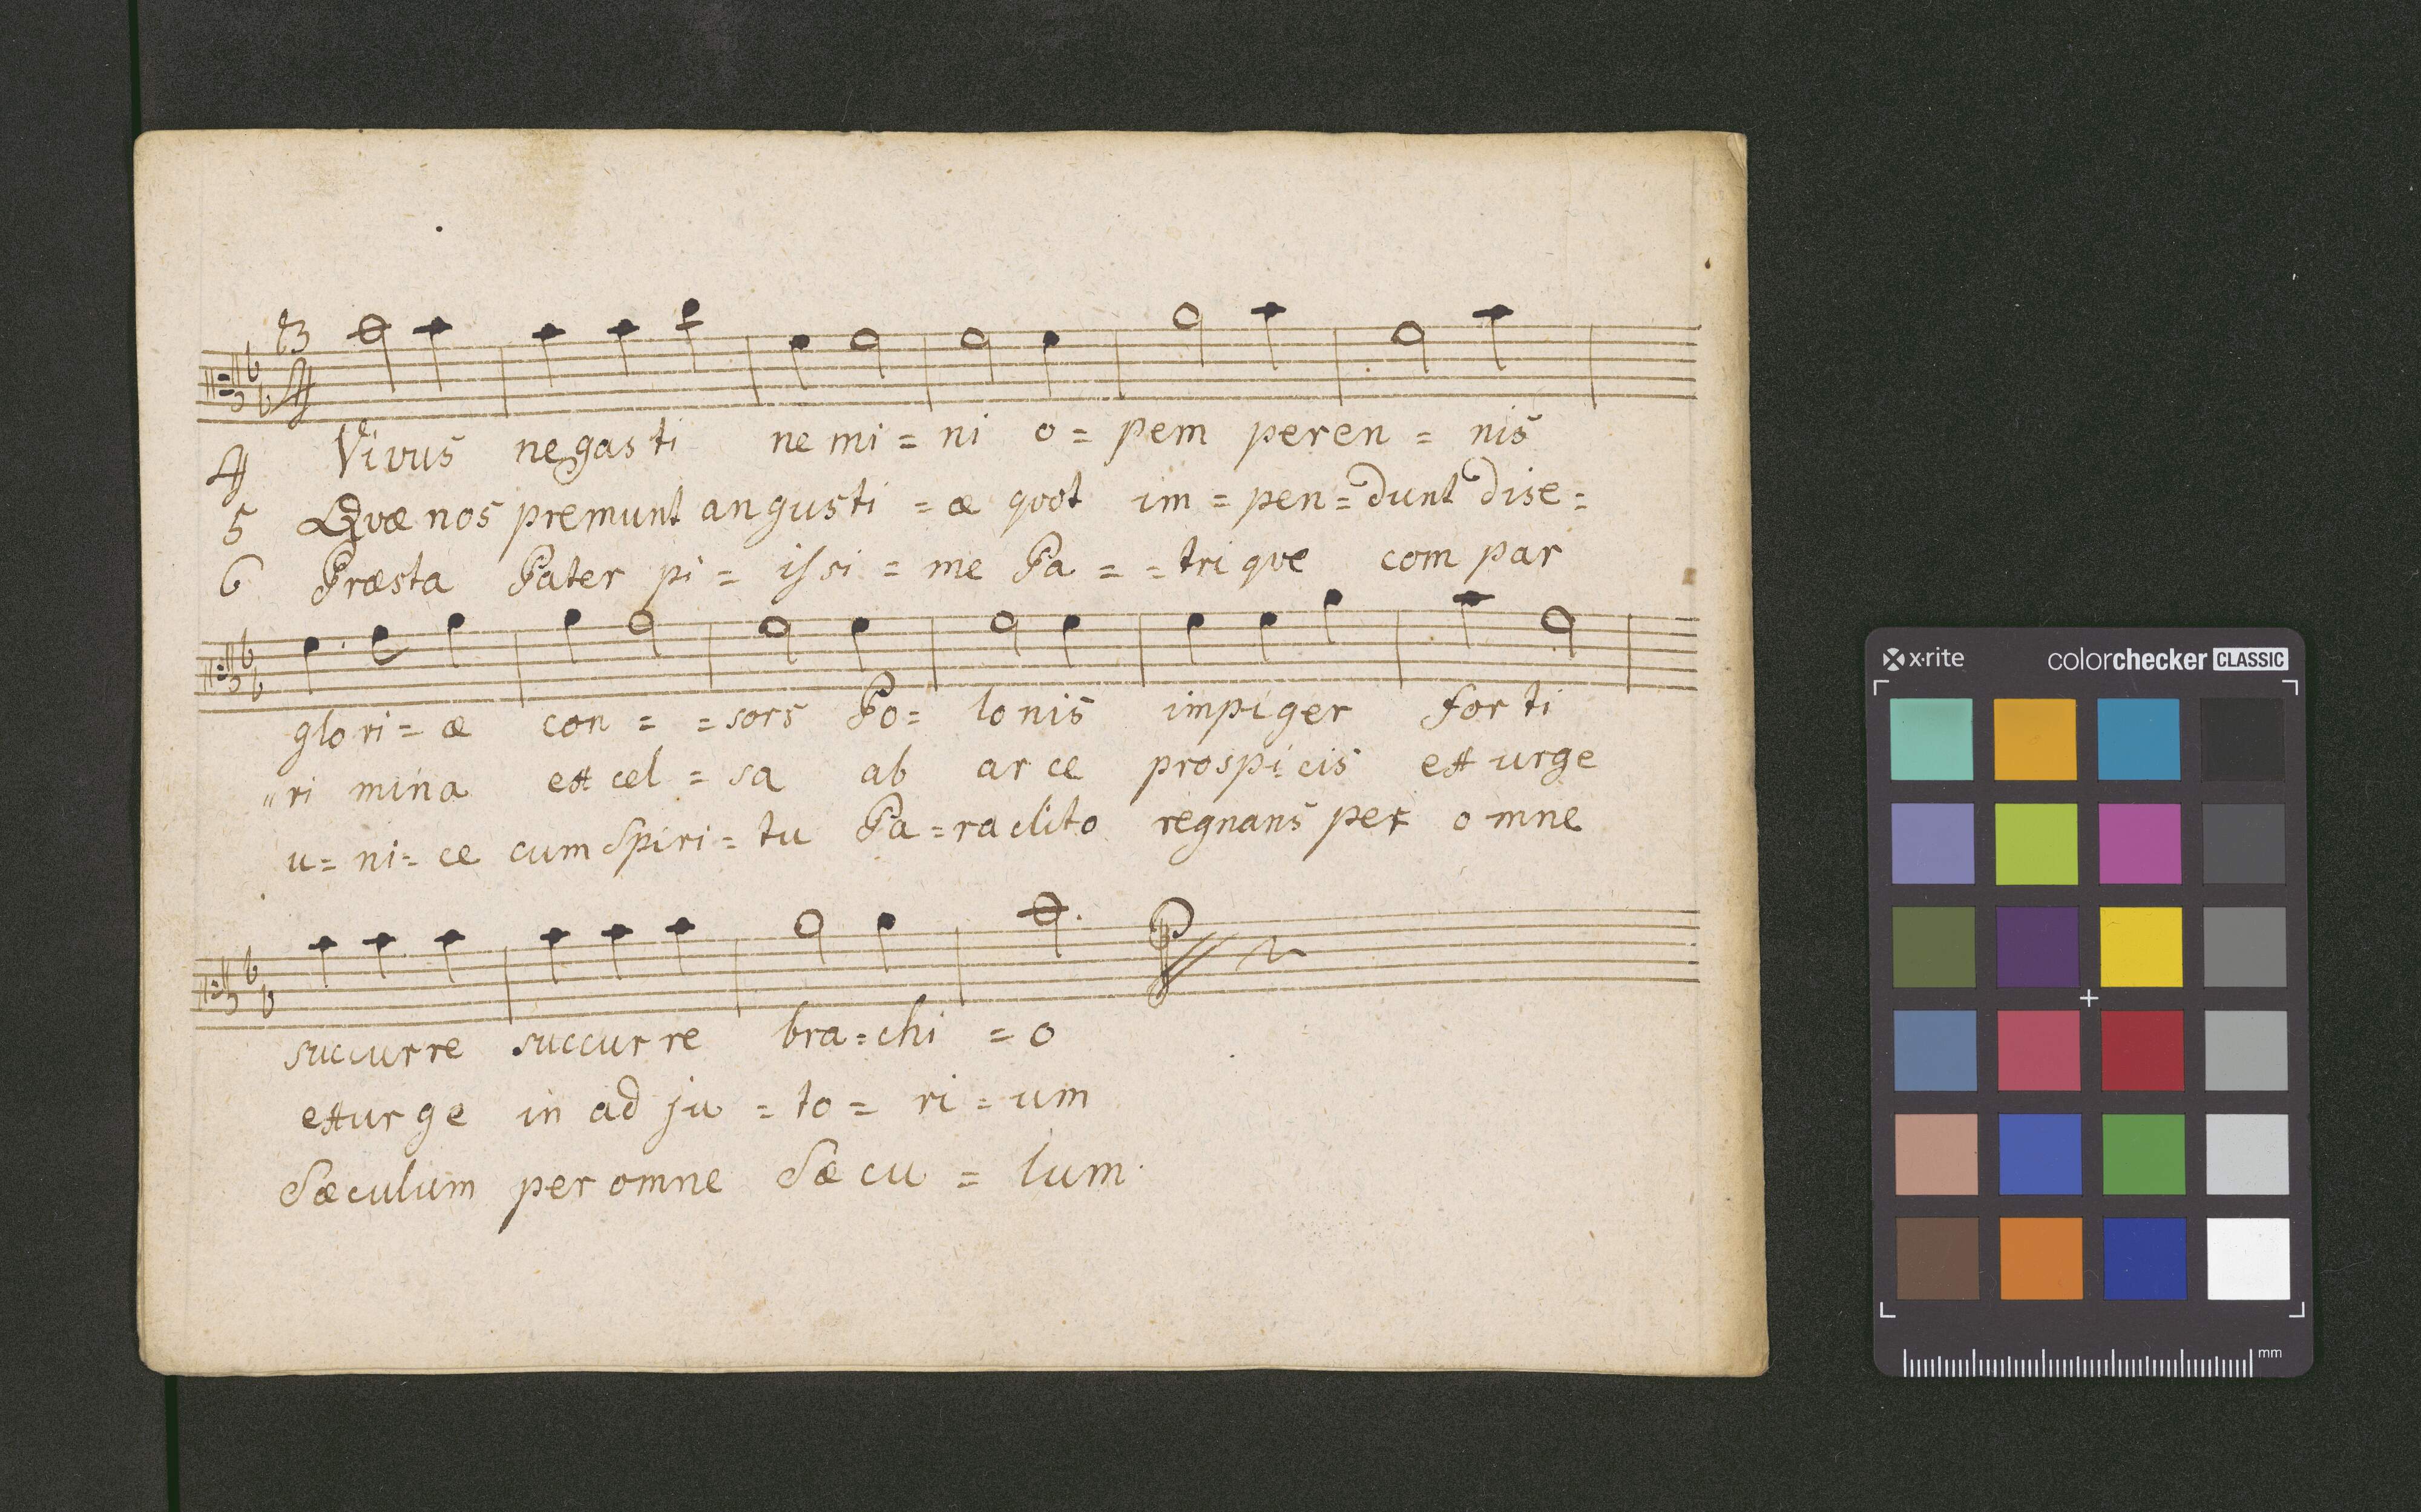 4 Vivus negasti ne mi = ni o = pem peren = nis
5 Qvæ nos premunt angusti = æ qvot im = pen = dunt dise =
6 Præsta Pater pi = issi = me Pa = = tri qve com par
glo ri = æ con = = sors Po = lo nis impiger for ti
" ri mina ex cel = sa ab ar ce prospi = cis ex urge
u = ni = ce cum Spiri = tu Pa = raclito regnans per o mne
succurre succurre bra = chi = o
exurge in ad ju = to = ri = um
Sæculum per omne Sæ cu = lum.
x·rite colorchecker CLASSIC
mm